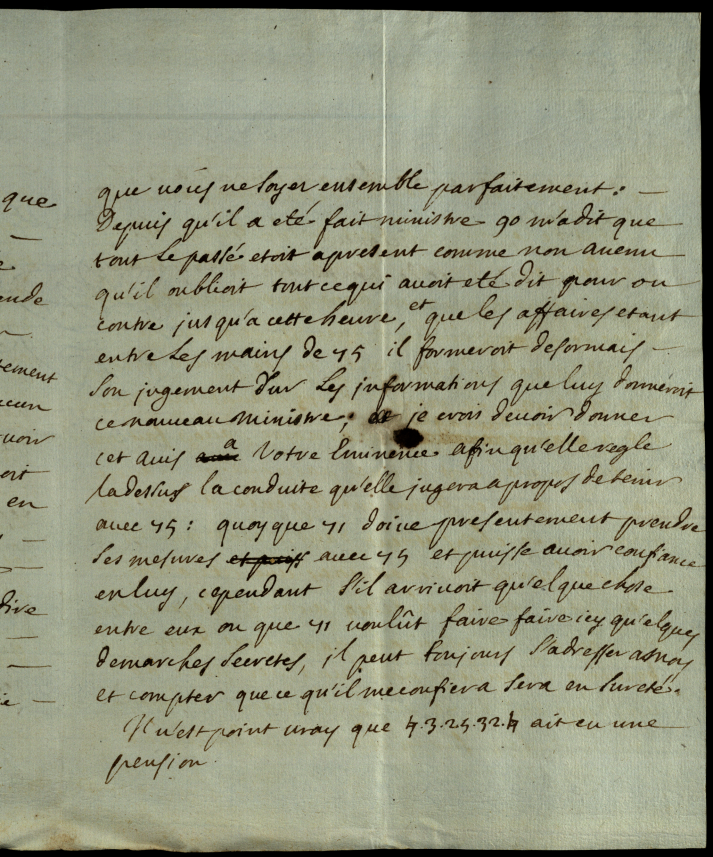 que
ende
tement
en
dire
que vous ne soyer ensemble parfaitement: —
Depuis qu'il a eté fait ministre 90 m'a dit que
tout le passé etoit apresent comme non avenu
qu'il oublioit tout cequi avoit eté dit pour ou
contre jusqu'a cette heure, et que les affaires etant
entre les mains de 45 il formeroit desormais —
son jugement sur les informations que luy donneroit
ce nouveau ministre; je crois devoir donner
cet avis a Votre Eminence afin qu'elle regle
la dessus la conduite qu'elle jugera apropos de tenir
avec 45: quoyque 41 doive presentement prendre
ses mesures et puiss avec 45 et puisse avoir confiance
en luy, cependant s'il arrivoit quelque chose
entre eux ou que 41 voulût faire faire icy quelques
demarches secretes, il peut toujours s'adresser a moy
et compter que ce qu'il me confiera sera en sureté.
Il n'est point vray que 4.3.25.32.4 ait eu une
pension.